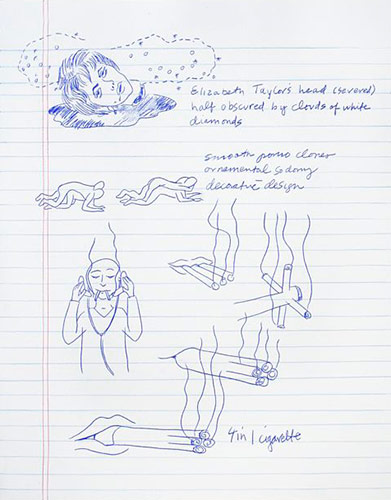 Elizabeth Taylor's head (severed)
half obscured by clouds of white
diamonds
smooth porno cloner
ornamental sodomy
decorative design
4 in 1 cigarette